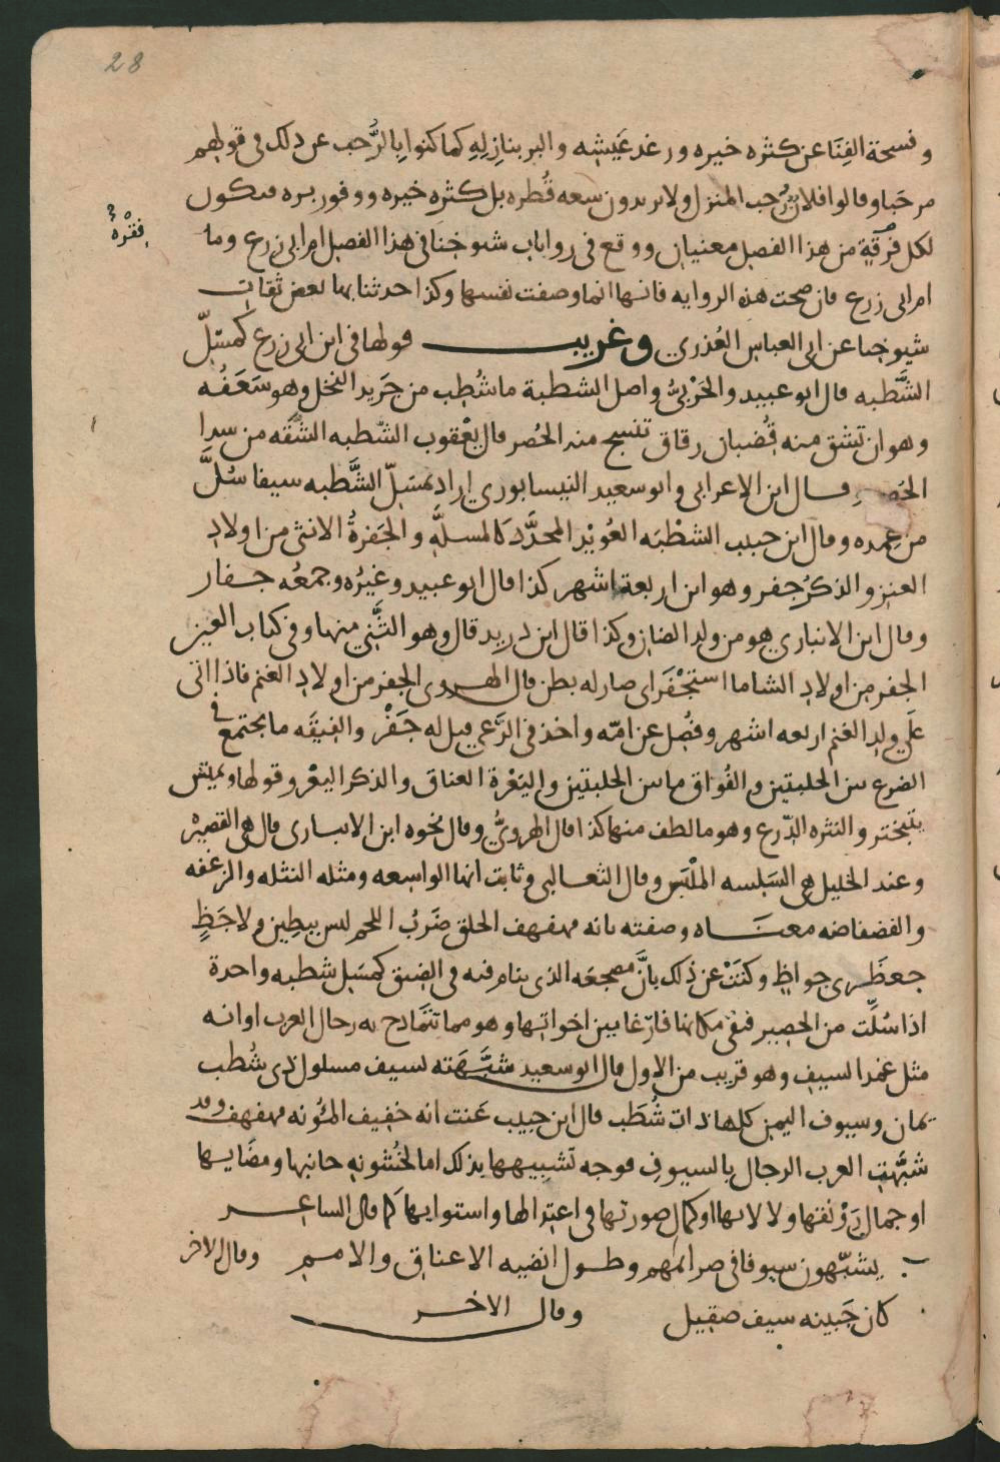 28
وفسحة الفِنَا عن كثره خيره ورغد عَيشِه والبر بنازِلِهِ كما كنوا بالرُّحب عن ذلك فى قولهم
مرحَبا وقالوا فلان رحب المنزل ولا يريدون سعه قُطره بل كثره خيره ووفور بره فيكون
فِقْرَةٌ
لكل فقرة من هذا الفصل معنيان ووقع فى روايات شيوخنا فى هذا الفصل ام ابى زرع وما
ام ابى زرع فان صحت هذه الروايه فانها انما وصفت نفسها وكذا حدثنا بها بعض ثقات
شيوخنا عن ابى العباس العُذرى وغريب قولها فى ابن ابى زرع كمسَلّ
الشَّطبه قال ابو عبيد والحَرْبىُّ واصل الشطبة ما شُطِب من جَريد النخل وهو سَعَفُه
وهو ان تشق منه قُضبان رقاق تنسج منه الحُصر قال يعْقوب الشطبه الشقه من سدا
الحَصير وقال ابن الاعرابى وابو سعيد النيسابورى اراد بمسَلّ الشَّطبه سيفا سُلَّ
من غِمده وقال ابن حبيب الشطْبَه العُوَيْد المحدَّد كالمسلَّه والجَفرةُ الانثى من اولاد
العنز والذكرُ جفر وهو ابن اربعة اشهر كذا قال ابو عبيد وغيرُه وجمعُه جفار
وقال ابن الانبارى هو من ولد الضان وكذا قال ابن دريد قال وهو الثَّنِي منها وفى كتاب العين
الجفر من اولاد الشا ما استجْفَر اى صار له بطن قال الهروى الجفر من اولاد الغنم فاذا اتى
عَلَى ولد الغنم اربعه اشهر وفُصِل عن امّه واخذ فى الرَّعى قيل له جَفْر والفِيقَه ما يجتمع فى
الضرع بين الحلبتين والفُوَاق ما بين الحلبتين واليَعْرة العناق والذكر اليعْر وقولها ويميس
يتبختر والنثره الدّرع وهو ما لطف منها كذا قال الهروىُّ وقال نحوه ابن الانبارى قال هى القصيرْ
وعند الخليل هى السَلِسه المَلْبَس وقال الثعالبى وثابت انها الواسعه ومثله النثله والزعفه
والفضفاضه معناه وصفته بانه مهفهف الخلق ضَرْبُ اللحم ليس ببطِين ولا جَظٍّ
جعظَرِى جواظٍ وكنَتْ عن ذلك بانَّ مضجعه الذى ينام فيه فى الضيق كمَسَل شطبه واحدة
اذا سُلَّت من الحصير فبقى مكانها فارغا بين اخواتها وهو مما تتمَادح به رجال العرب او انه
مثل غمد السيف وهو قريب من الاول قال ابو سعيد شبَّهَته بسيف مسلول ذى شُطب
يمان وسيوف اليمن كلها ذات شُطَب قال ابن حبيب عَنت انه خفيف المؤونه مهفهف وقد
شبَّهَتِ العرب الرجال بالسيوف فوجه تشبيهها بذلك اما لخُشونه جانبها ومضَايها
او جمال رَوْنقها ولالائها او كمال صورتها فى اعتدالها واستوايها كما قال الشاعر
يشبّهون سيوفا فى صرامتهم وطول انضيه الاعناق والامم وقال الاخر
كان جَبينه سيف صقيل وقال الاخر